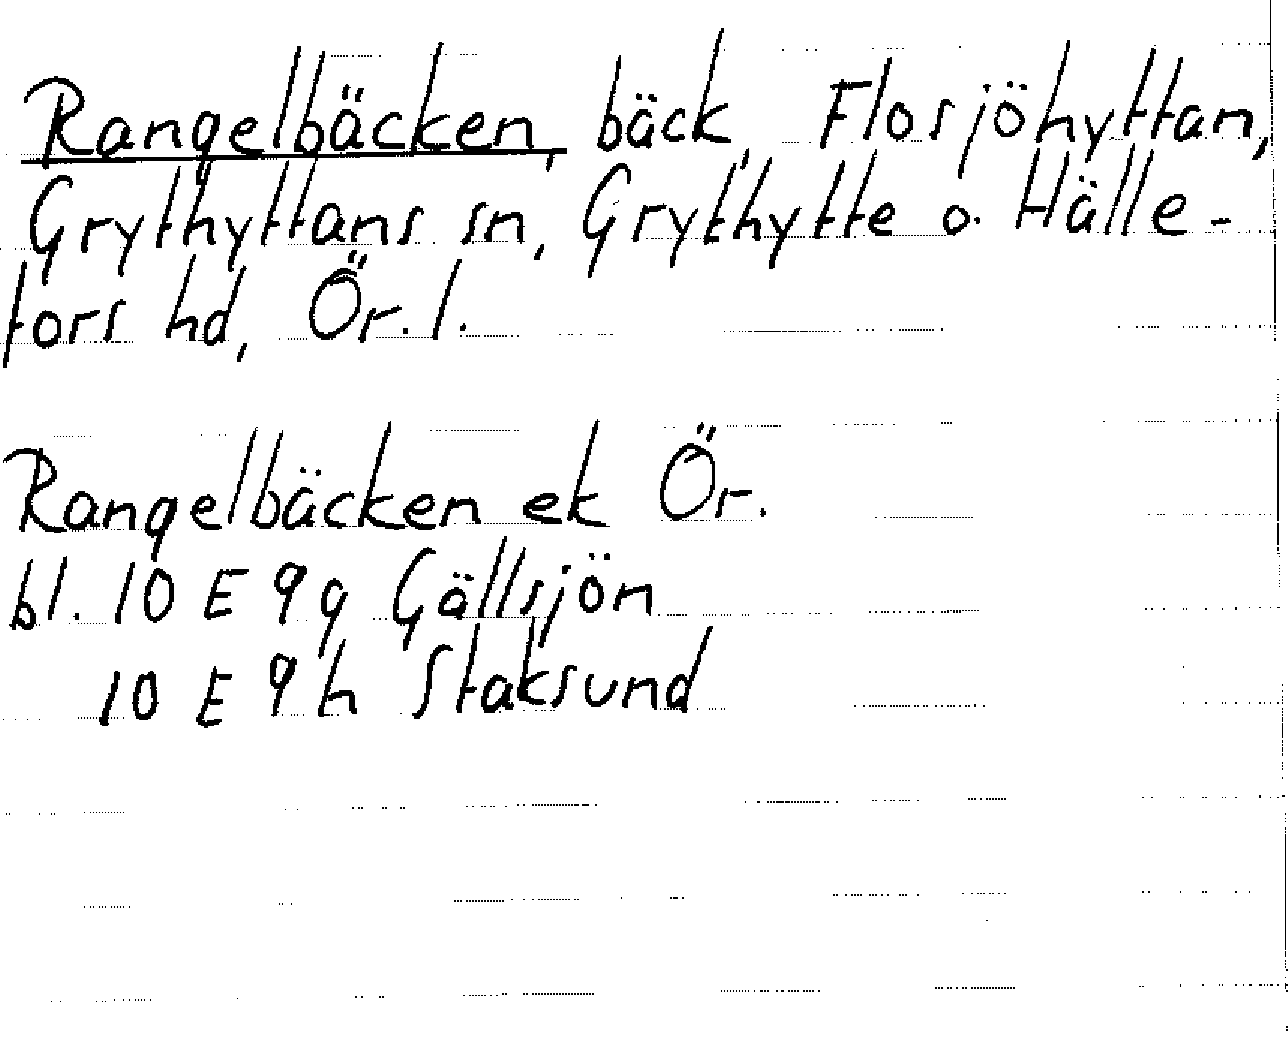 Rangelbäcken, bäck, Flosjöhyttan,
Grythyttans sn, Grythytte o. Hälle-
fors hd, Ör. l.
Rangelbäcken ek Ör.
bl. 10 E 9 g Gällsjön
10 E 9 h Staksund